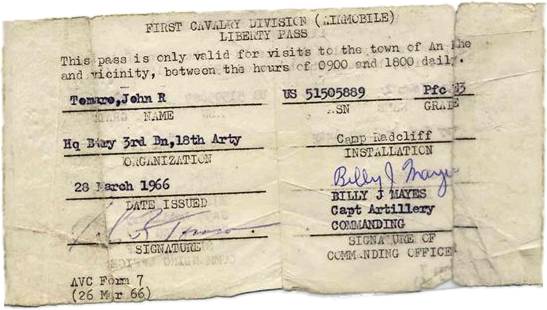 FIRST CAVALRY DIVISION (AIRMOBILE)
LIBERTY PASS
This pass is only valid for visits to the town of An Khe
and vicinity, between the hours of 0900 and 1800 daily.
Tomaro,John R US 51505889 Pfc E3
NAME ASN GRADE
Hq Btry 3rd Bn,18th Arty Camp Radcliff
ORGANIZATION INSTALLATION
28 March 1966 Billy J Mayes
DATE ISSUED BILLY J MAYES
Capt Artillery
COMMANDING
SIGNATURE SIGNATURE OF
COMMANDING OFFICE
AVC Form 7
(26 Mar 66)